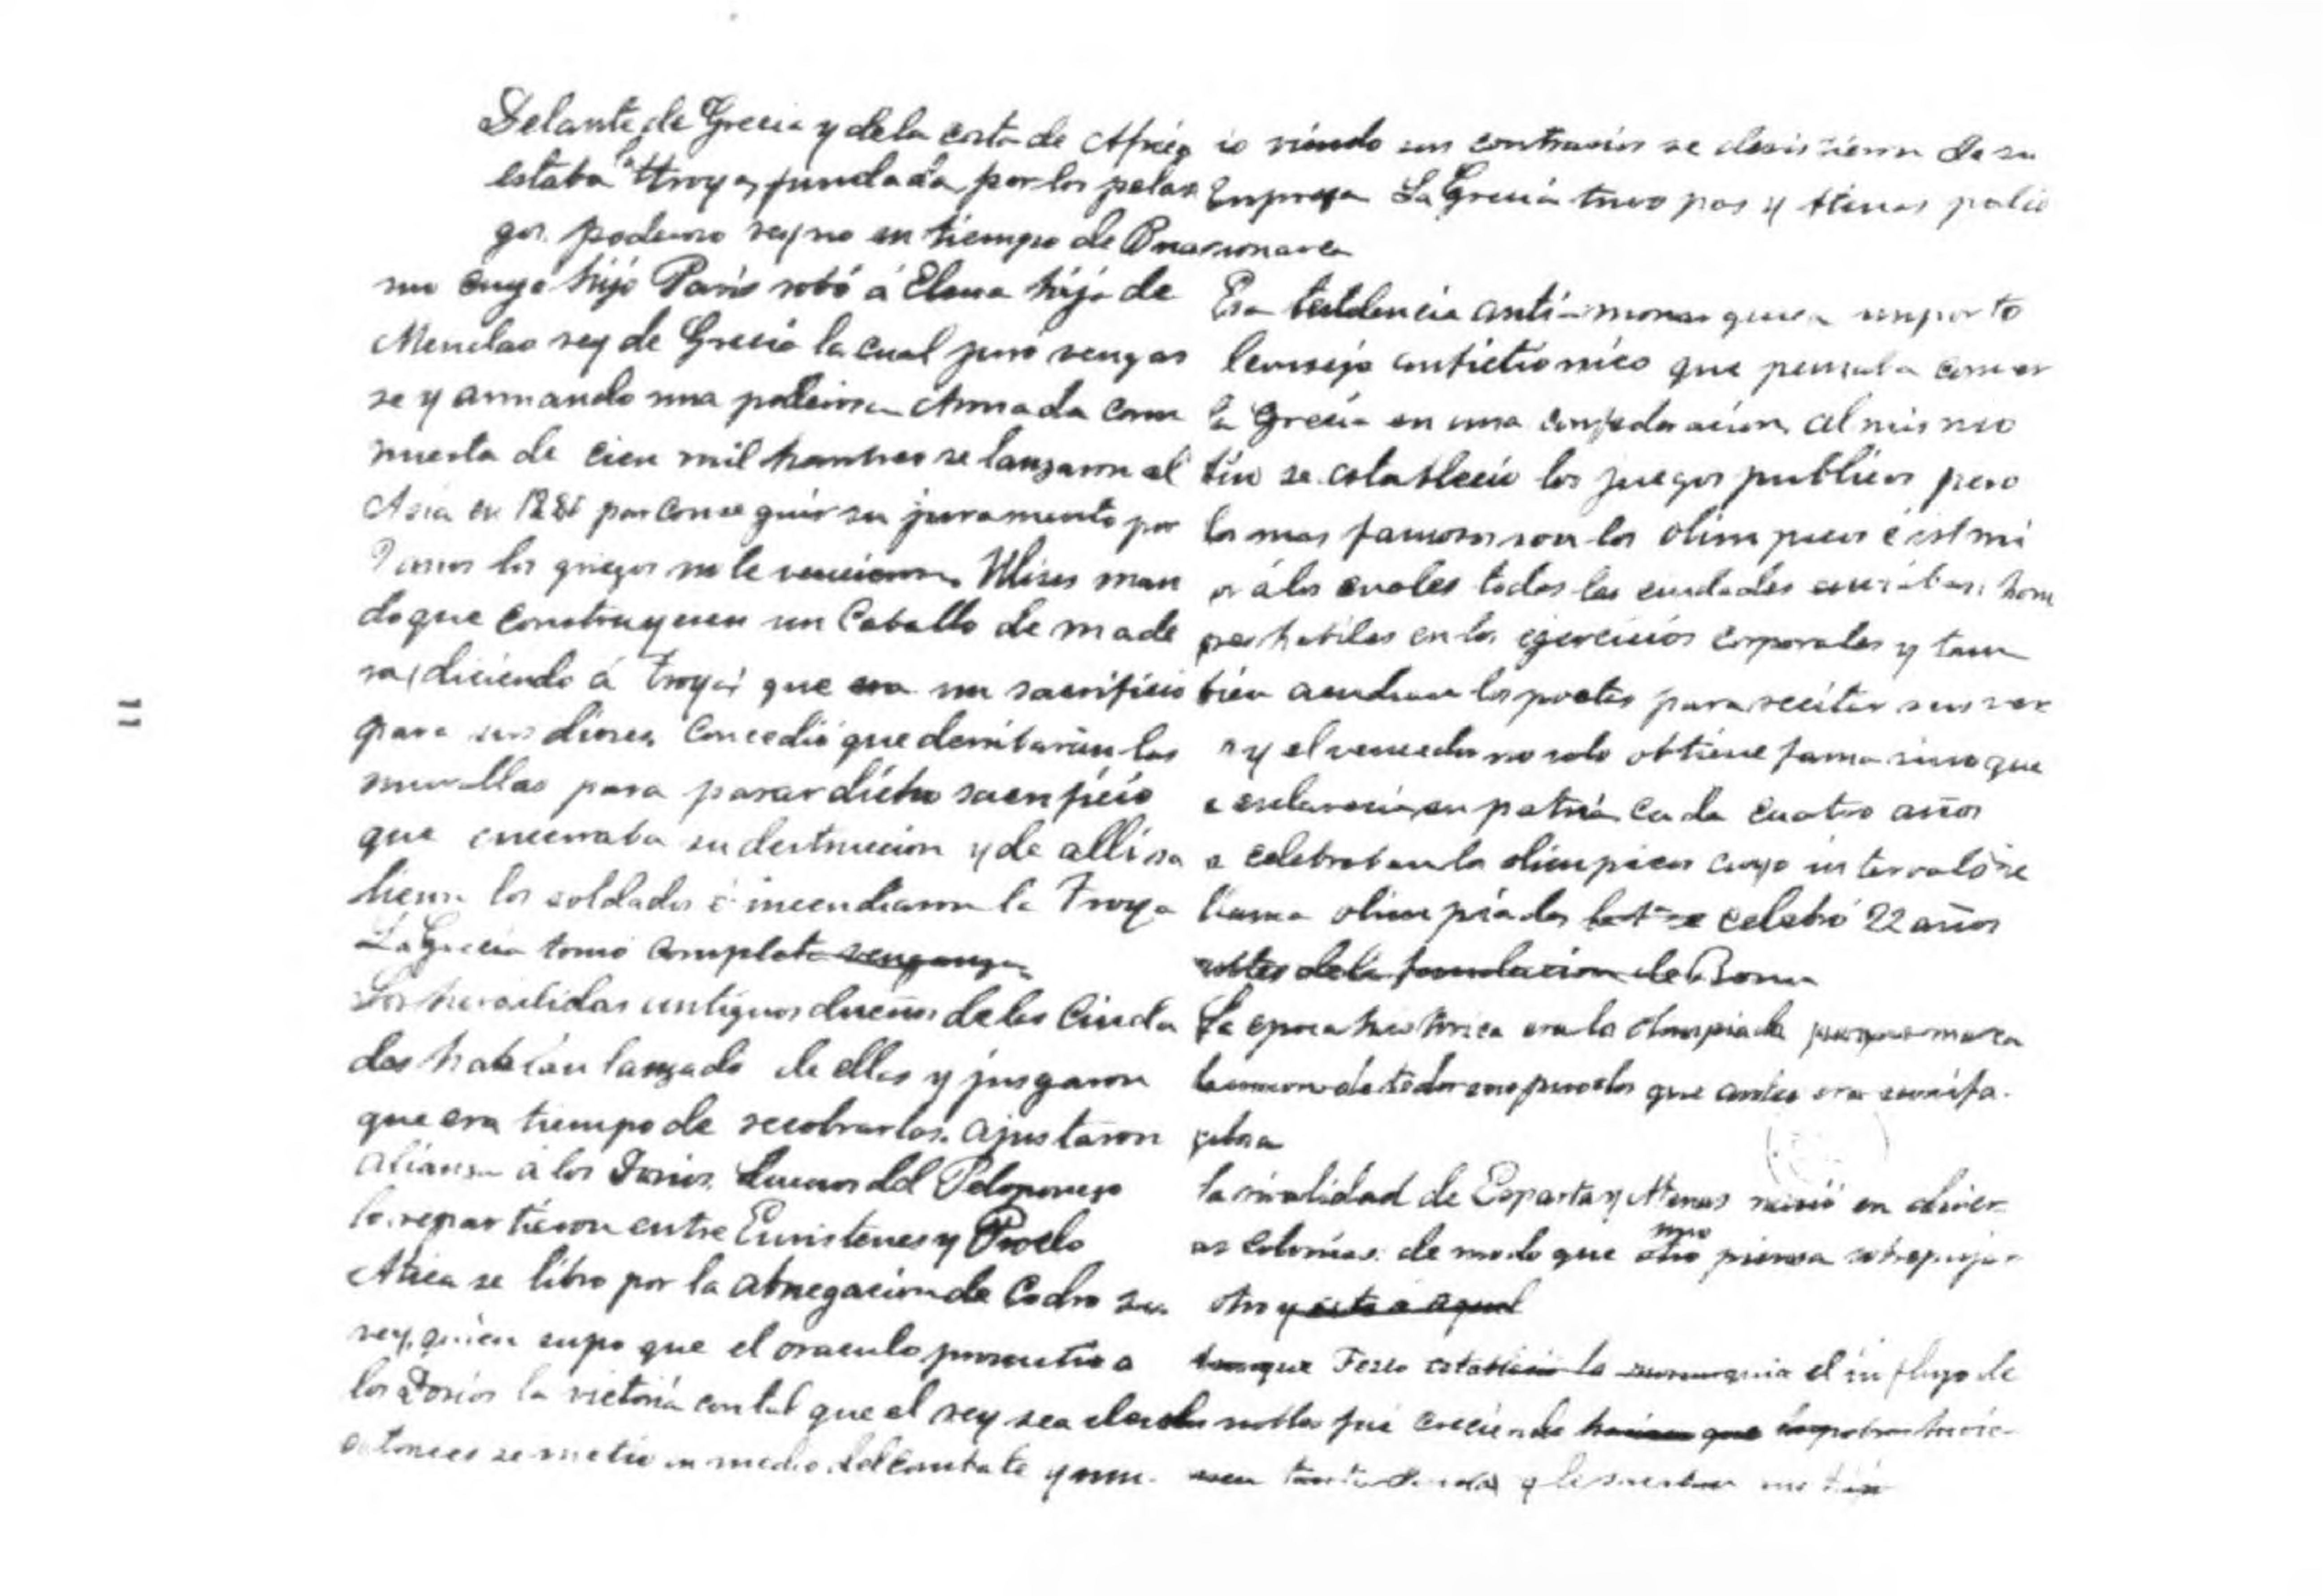 Delante de Grecia y de la costa de Africa
estaba la Troya, fundada por los pelas
gos. poderoso reyno en tiempo de
mo cuyo hijo Paris robó á Elena hija de
Menelao rey de Grecia la cual juró vengar
se y armando una poderosa Armada com
puesta de cien mil hombres se lanzaron al
Asia en por conseguir su juramento por
años los griegos no le vencieron. Ulises man
do que construyesen un Caballo de made
ra, diciendo á Troya que era un sacrificio
para sus dioses. Concedió que derribarian las
murallas para pasar dicho sacrificio
que encerraba su destruccion y de alli sa
lieron los soldados é incendiaron la Troya
La Grecia tomó completa venganza
Los heraclidas antiguos dueños de las Ciuda
des habian lanzado de ellas y jusgaron
que era tiempo de recobrarlas. ajustaron
alianza á los Dorios. duenos del Peloponeso
lo repartieron entre Euristenes y Procle
Atica se libro por la abnegacion de Codro su
rey, quien supo que el oraculo prometio a
los Dorios la victoria con tal que el rey sea
entonces se metió en medio del combate y mu
io viendo sus contrarios se desistieron de su
Empresa La Grecia tuvo pas y Atenas
Esa tendencia anti-monarquica
consejo anfictionico que pensaba
la Grecia en una confederacion, al mismo
tiu se establecio los juegos publicos pero
los mas famosos son los olimpicos é istmi
os á los cuales todas las ciudades enviaban hom
pres habiles en los ejercicios corporales y tam
bien acudian los poetas para recitar sus ver
s y el vencedor no solo obtiene fama sino que
e esclarecia su patria, Cada cuatro años
e celebraban la olimpicos cuyo intervalo se
llama olimpiadas la 1ª se celebró 22 años
antes de la fundacion de Roma
La epoca historica era la olimpiada porque marca
la union de todos sus pueblos que antes era
gulosa
La rivalidad de Esparta y Atenas nació en diver
as colonias. de modo que uno otro piensa sobrepujar
otro y este a aquel
Aunque Teseo estableció la monarquia el influjo de
nobles fué creciendo hacian que los pobres
tanta